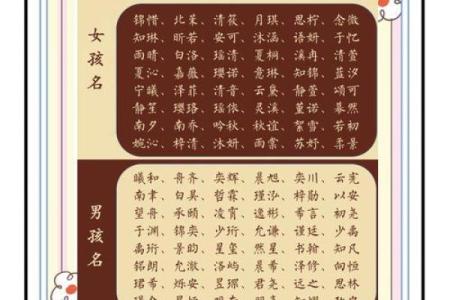 女孩名
锦惜、北茉、清筱、月琪、思柠、念微
知琳、昕若、安可、沐涵、语妍、于忆
雨晴、白洛、瑶清、夏桐、溪冉、清萱
夏沁、嘉薇、璎诺、意琳、知锦、蓝汐
宁曦、泽菲、清音、云黛、静萱、颂可
静笙、璎珞、瑶依、灵溪、堇诺、慕然
南夕、南乔、吟秋、秋谊、絮雪、若初
婉沁、梓清、沐妍、雨棠、苏妤、柔景
男孩名
曦和、舟齐、奕辉、晨旭、奕川、云宪
南聿、白昊、哲霖、瑾泓、梓勋、以安
望舟、承颐、凌霄、逸彬、希言、初尧
于渊、锦奕、少珩、允谦、谨廷、少禹
禹珩、景勋、星玺、然星、书翰、知凡
铭朗、允澈、洛屿、晨希、泽修、向恒
君浩、安